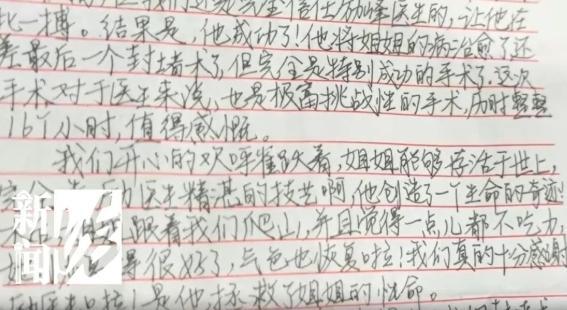 我们完全信任励峰医生的,让他在
此一搏。结果是,他成功了!他将姐姐的病治愈了还
差最后一个封堵术了,但完全是特别成功的手术了,这次
手术对于医生来说,也是极富挑战性的手术,历时整整
16个小时,值得感慨。
我们开心的欢呼雀跃着,姐姐能够存活于世上,
医生精湛的技艺啊,他创造了一个生命的奇迹!
跟着我们爬山,并且觉得一点儿都不吃力,
得很好了,气色也恢复啦!我们真的十分感谢
是他,拯救了姐姐的性命。
新闻